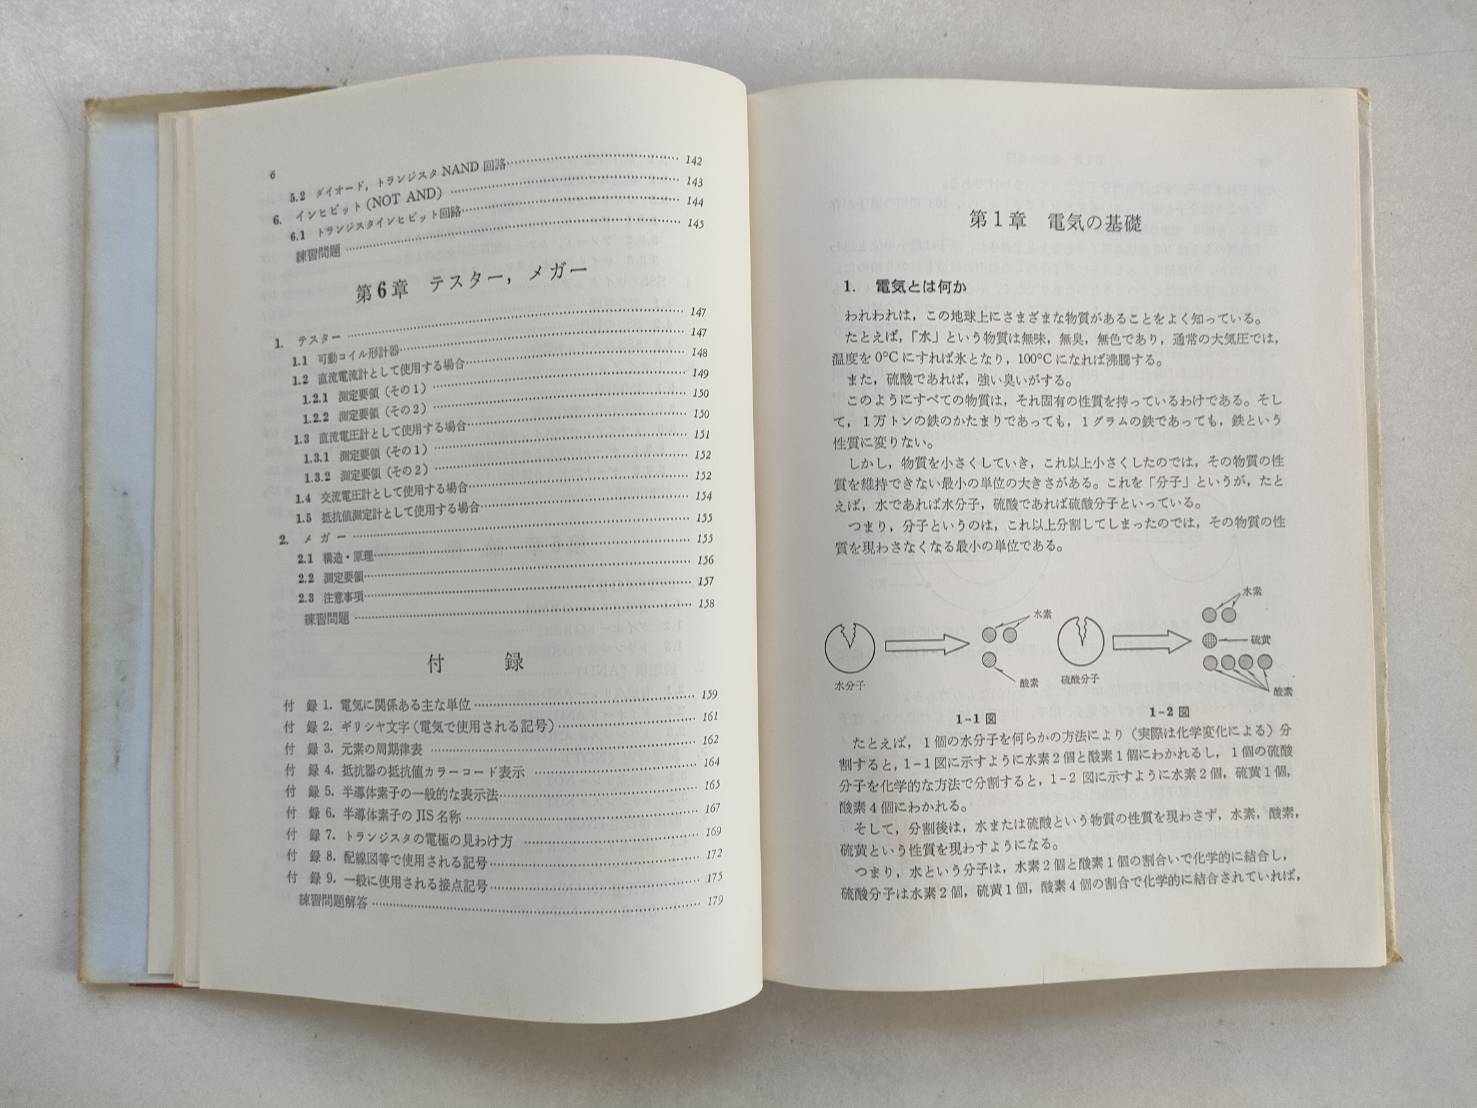 6
5.2 ダイオード，トランジスタ NAND 回路 142
6. インヒビット (NOT AND) 143
6.1 トランジスタインヒビット回路 144
練習問題 145
第6章 テスター，メガー
1. テスター 147
1.1 可動コイル形計器 147
1.2 直流電流計として使用する場合 148
1.2.1 測定要領（その1） 149
1.2.2 測定要領（その2） 150
1.3 直流電圧計として使用する場合 150
1.3.1 測定要領（その1） 151
1.3.2 測定要領（その2） 152
1.4 交流電圧計として使用する場合 152
1.5 抵抗値測定計として使用する場合 154
2. メガー 155
2.1 構造・原理 155
2.2 測定要領 156
2.3 注意事項 157
練習問題 158
付録
付録 1. 電気に関係ある主な単位 159
付録 2. ギリシヤ文字（電気で使用される記号） 161
付録 3. 元素の周期律表 162
付録 4. 抵抗器の抵抗値カラーコード表示 164
付録 5. 半導体素子の一般的な表示法 165
付録 6. 半導体素子の JIS 名称 167
付録 7. トランジスタの電極の見わけ方 169
付録 8. 配線図等で使用される記号 172
付録 9. 一般に使用される接点記号 175
練習問題解答 179
第1章 電気の基礎
1. 電気とは何か
われわれは，この地球上にさまざまな物質があることをよく知っている。
たとえば，「水」という物質は無味，無臭，無色であり，通常の大気圧では，
温度を 0°C にすれば氷となり，100°C になれば沸騰する。
また，硫酸であれば，強い臭いがする。
このようにすべての物質は，それ固有の性質を持っているわけである。そし
て，1万トンの鉄のかたまりであっても，1グラムの鉄であっても，鉄という
性質に変りない。
しかし，物質を小さくしていき，これ以上小さくしたのでは，その物質の性
質を維持できない最小の単位の大きさがある。これを「分子」というが，たと
えば，水であれば水分子，硫酸であれば硫酸分子といっている。
つまり，分子というのは，これ以上分割してしまったのでは，その物質の性
質を現わさなくなる最小の単位である。
水分子
水素
酸素
1-1 図
硫酸分子
水素
硫黄
酸素
1-2 図
たとえば，1個の水分子を何らかの方法により（実際は化学変化による）分
割すると，1-1 図に示すように水素2個と酸素1個にわかれるし，1個の硫酸
分子を化学的な方法で分割すると，1-2 図に示すように水素2個，硫黄1個，
酸素4個にわかれる。
そして，分割後は，水または硫酸という物質の性質を現わさず，水素，酸素，
硫黄という性質を現わすようになる。
つまり，水という分子は，水素2個と酸素1個の割合いで化学的に結合し，
硫酸分子は水素2個，硫黄1個，酸素4個の割合で化学的に結合されていれば，